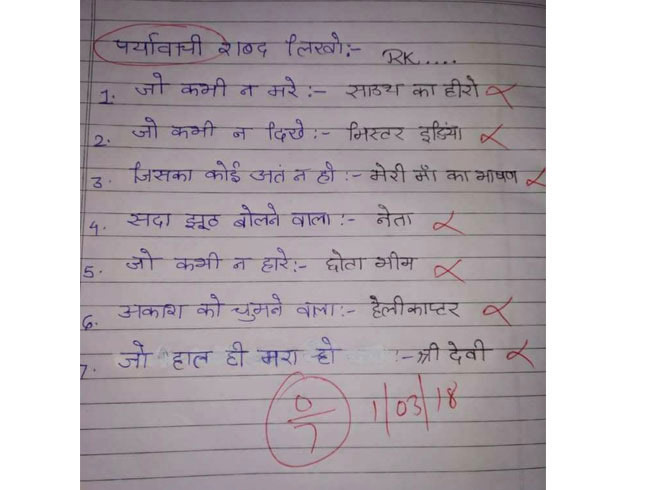 पर्यावाची शब्द लिखो:- RK.....
1. जो कभी न मरे:- साउथ का हीरो
2. जो कभी न दिखे:- मिस्टर इंडिया
3. जिसका कोई अतं न हो:- मेरी माँ का भाषण
4. सदा झूठ बोलने वाला:- नेता
5. जो कभी न हारे:- छोटा भीम
6. अकाश को चुमने वाला:- हेलीकाप्टर
7. जो हाल ही मरा हो :- श्री देवी
0/7 1/03/18